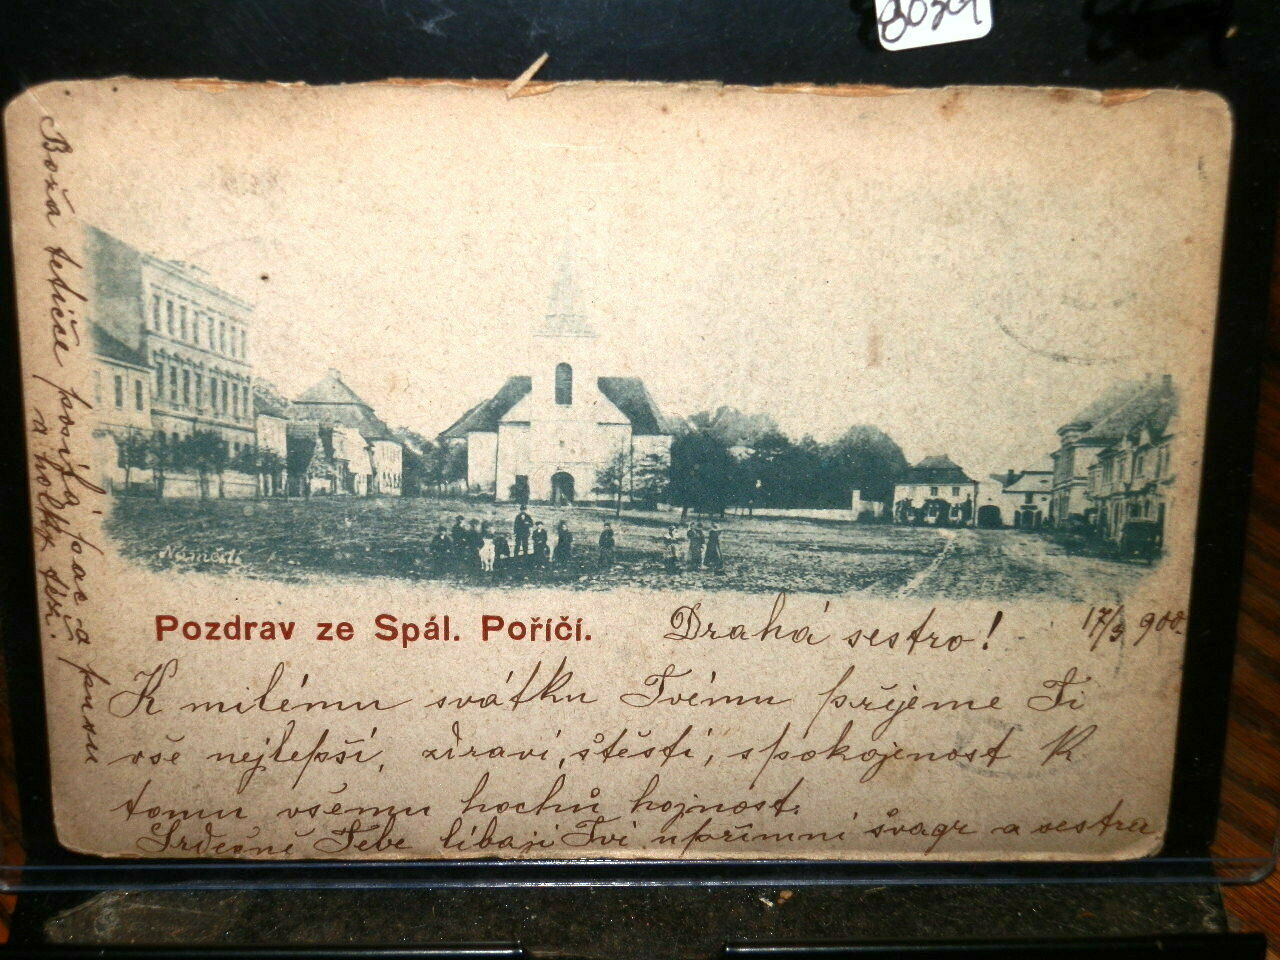 Náměstí
Pozdrav ze Spál. Poříčí.
Drahá sestro!
17/3 900.
K milému svátku Tvému přejeme Ti
vše nejlepší, zdraví, štěstí, spokojenost K
tomu všemu hochů hojnost.
Srdečně Tebe líbají Tvi upřímní švagr a sestra
Boža tetičce posílá pac a pusu
a holky též.